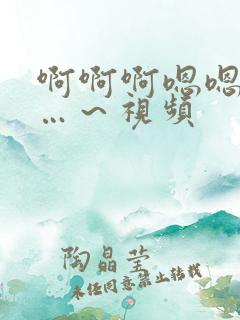 啊啊啊嗯嗯
…～視頻
陶晶莹
未经同意禁止转载